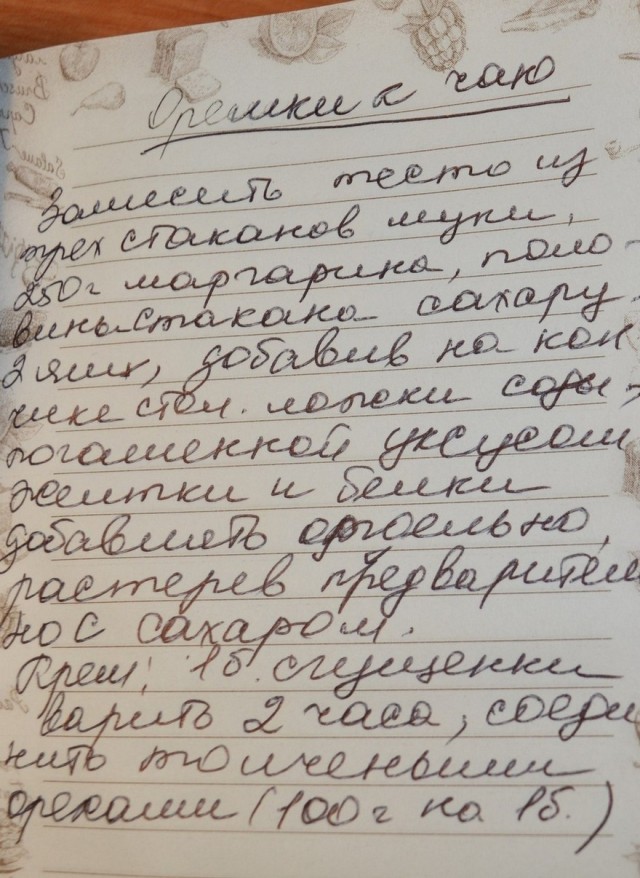 Орешки к чаю
Замесить тесто из
трех стаканов муки,
250г маргарина, поло-
вины стакана сахару,
2 яиц, добавив на кон
чике стол. ложки соды,
погашенной уксусом
Желтки и белки
добавлять отдельно,
растерев предварител
но с сахаром.
Крем: 1б. сгущенки
варить 2 часа, соеди
нить толчеными
орехами (100г на 1б.)